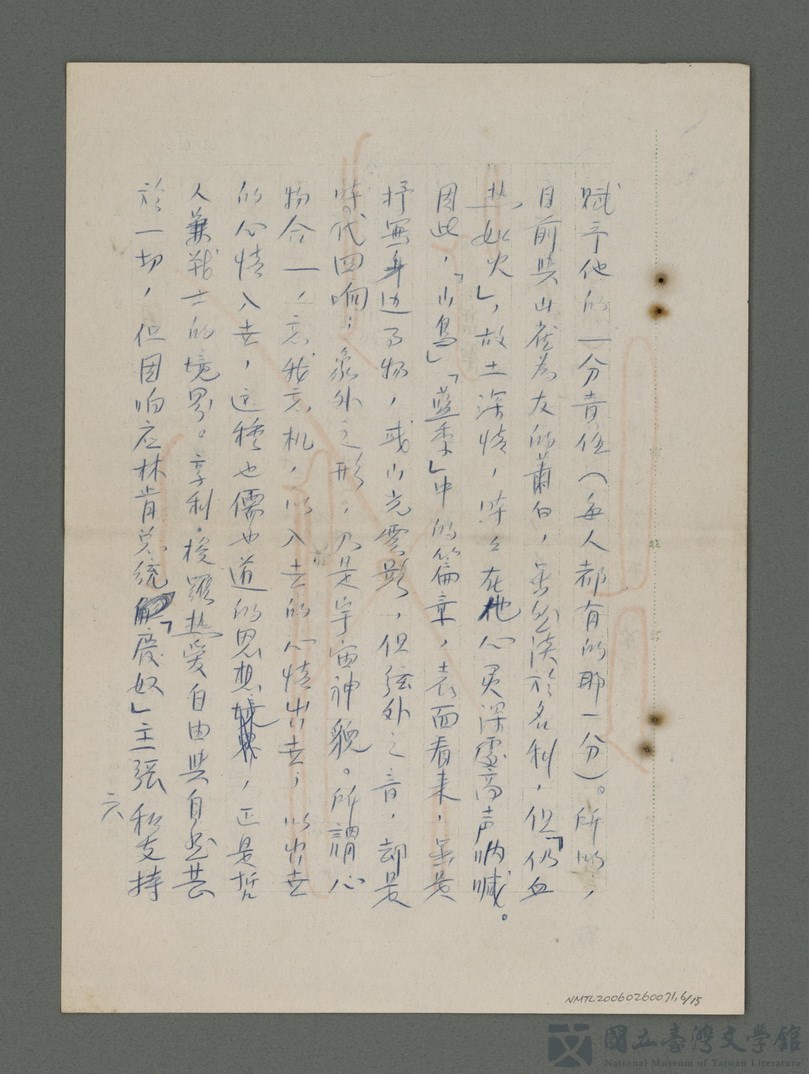 赋予他的一分責任(每人都有的那一分)。所以,
目前與山雀為友的蕭白,虽然淡於名利,但「仍血
热如火」,故土深情,時々在他心灵深處高声吶喊。
因此,「山鳥」「藍季」中的篇章,表面看来,虽是
抒寫身边事物,或山光雲影,但弦外之音,却是
時代回响;象外之形,乃是宇宙神貌。所謂心
物合一,忘我忘机,以入世的心情出世;以出世
的心情入世,这種也儒也道的思想,正是哲
人兼战士的境界。享利·梭羅热爱自由與自然甚
於一切,但因响应林肯总統「废奴」主張和支持
六
NMTL20060260071,6/15
國立臺灣文學館
National Museum of Taiwan Literature